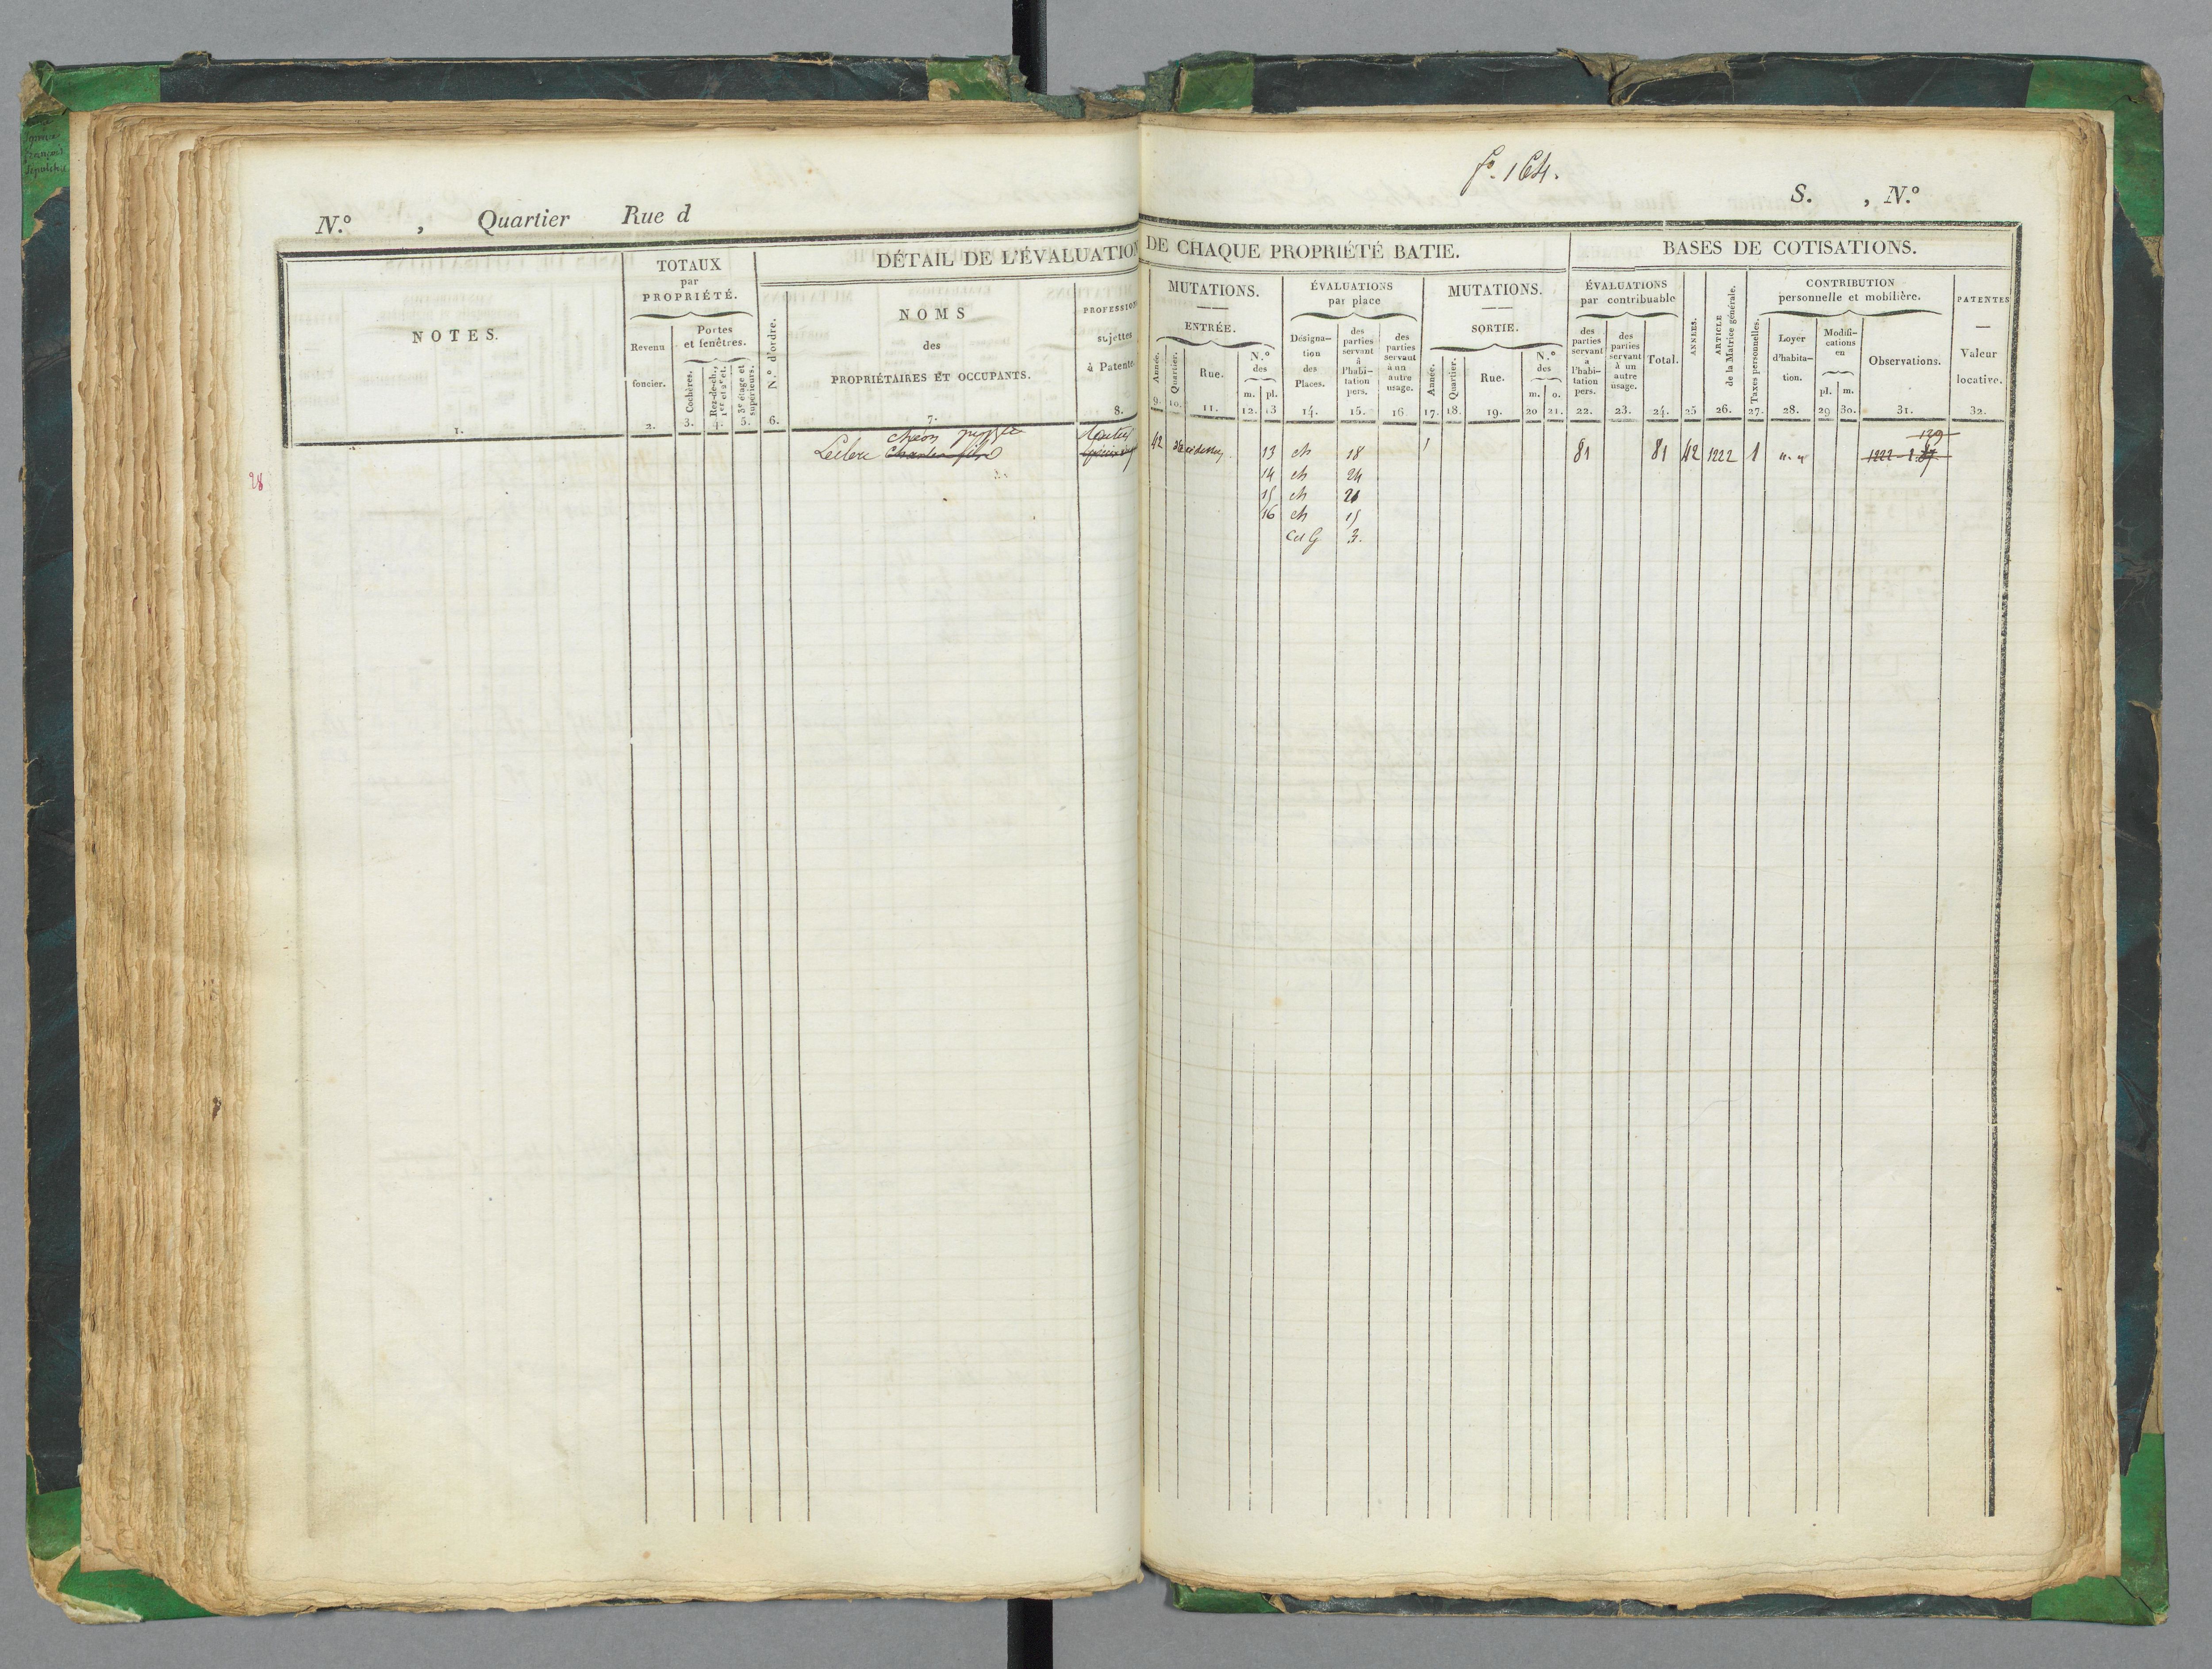 fo. 164.
N.o , Quartier Rue d
S. , N.o
DÉTAIL DE L'ÉVALUATION DE CHAQUE PROPRIÉTÉ BATIE.
BASES DE COTISATIONS.
NOTES.
1.
TOTAUX
par
PROPRIÉTÉ.
Revenu
foncier.
2.
Portes
et fenêtres.
Cochères.
3.
Rez-de-ch.,
1er et 2e ét.
4.
3e étage et
supérieurs.
5.
N.o d'ordre.
6.
NOMS
des
PROPRIÉTAIRES ET OCCUPANTS.
7.
PROFESSION
sujettes
à Patente.
8.
MUTATIONS.
ENTRÉE.
Année.
9.
Quartier.
10.
Rue.
11.
N.o
des
m.
12.
pl.
13
ÉVALUATIONS
par place
Désigna-
tion
des
Places.
14.
des
parties
servant
à
l'habi-
tation
pers.
15.
des
parties
servant
à un
autre
usage.
16.
MUTATIONS.
SORTIE.
Année.
17.
Quartier.
18.
Rue.
19.
N.o
des
m.
20
o.
21.
ÉVALUATIONS
par contribuable
des
parties
servant
à
l'habi-
tation
pers.
22.
des
parties
servant
à un
autre
usage.
23.
Total.
24.
ANNÉES.
25
ARTICLE
de la Matrice générale.
26.
Taxes personnelles.
27.
CONTRIBUTION
personnelle et mobilière.
Loyer
d'habita-
tion.
28.
Modifi-
cations
en
pl.
29
m.
30.
Observations.
31.
PATENTES
Valeur
locative.
32.
28
Leclerc
42 ci dessus 13 ch 18 81 81 42 1222 1
129
1222
14 ch 24
15 ch 21
16 ch 15
Cu G 3.